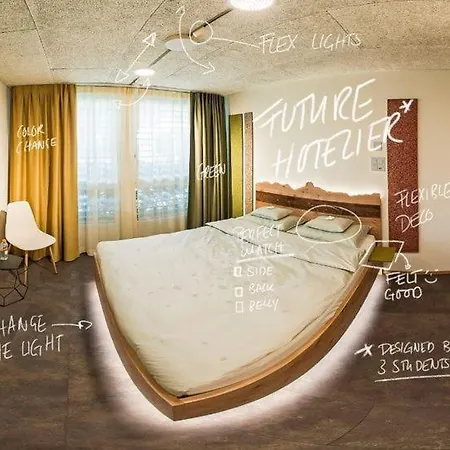 FLEX LIGHTS
FUTURE
HOTELIER*
COLOR
CHANGE
GREEN
FLEXIBLE
DECO
PERFECT
MATCH
SIDE
BACK
BELLY
FELT
GOOD
CHANGE
THE LIGHT
* DESIGNED BY
3 STUDENTS